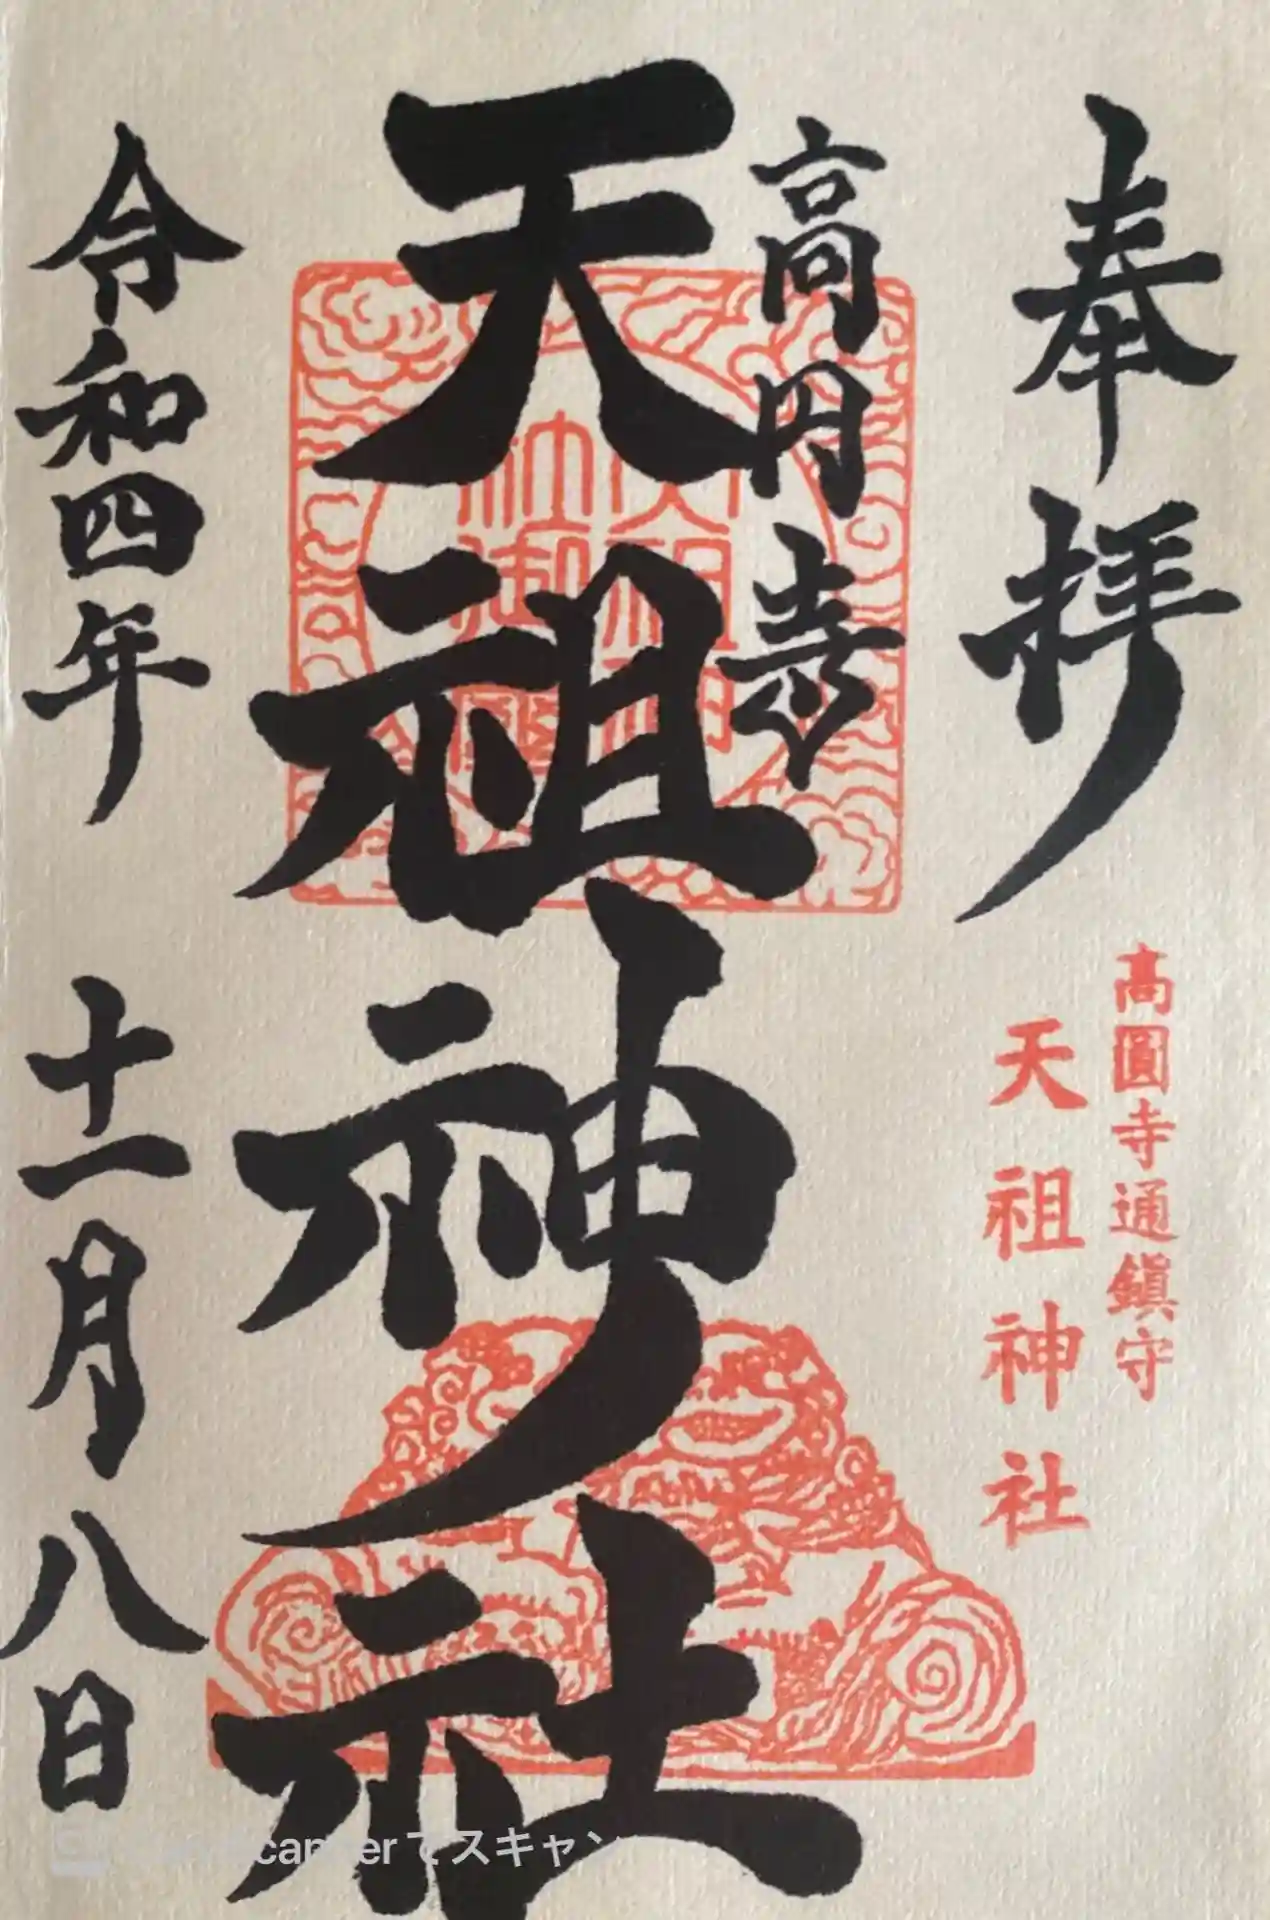 奉拝
高圓寺通鎭守
天祖神社
高円寺
天祖神社
令和四年 十一月八日
でスキャン